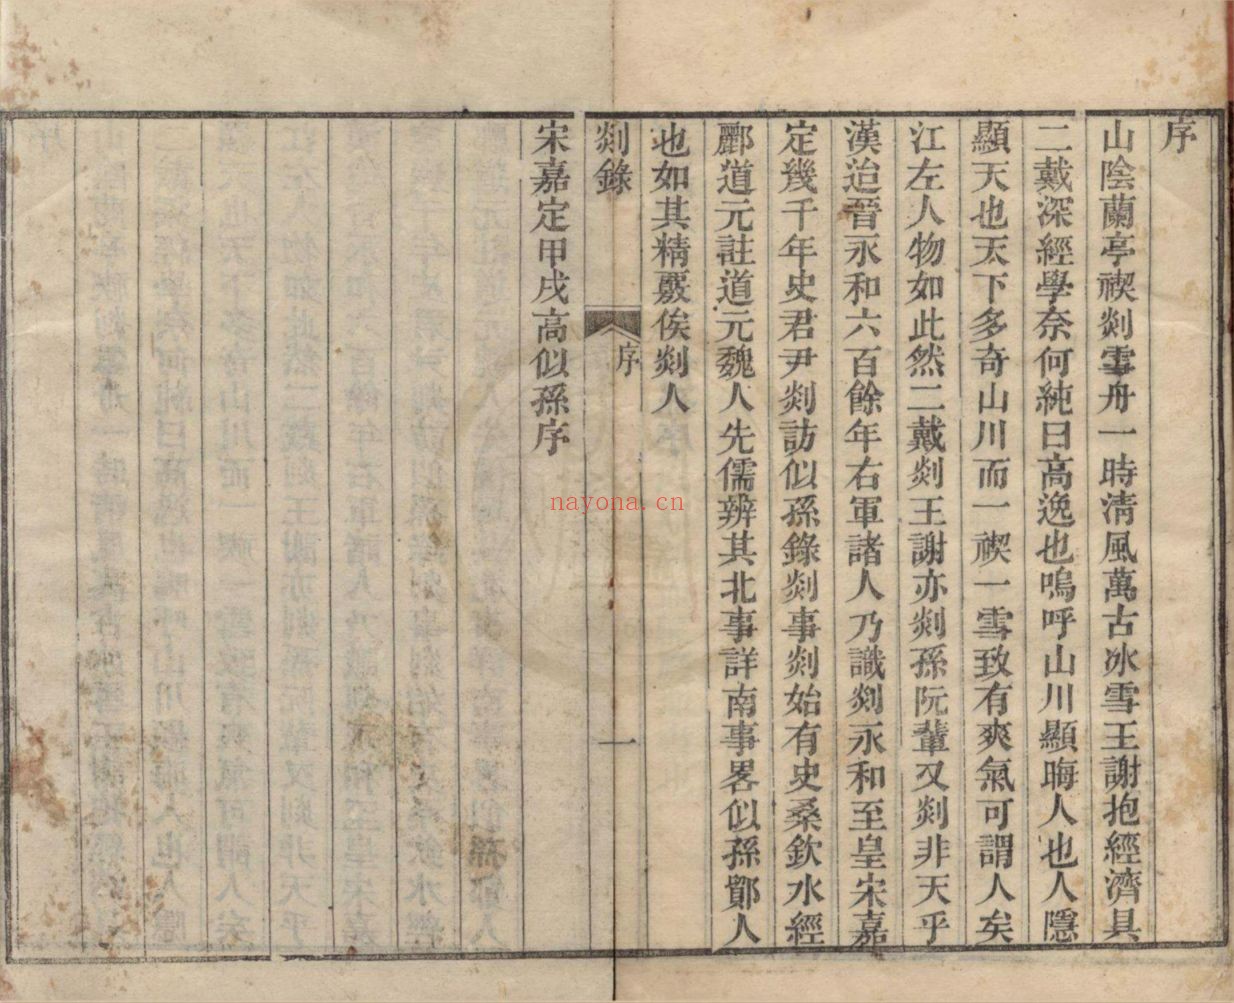 序
山陰蘭亭禊剡雪舟一時清風萬古冰雪王謝抱經濟具
二戴深經學奈何純曰高逸也嗚呼山川顯晦人也人隱
顯天也天下多奇山川而一禊一雪致有爽氣可謂人矣
江左人物如此然二戴剡王謝亦剡孫阮輩又剡非天乎
漢迨晉永和六百餘年右軍諸人乃識剡永和至皇宋嘉
定幾千年史君尹剡訪似孫錄剡事剡始有史桑欽水經
酈道元註道元魏人先儒辨其北事詳南事畧似孫鄞人
也如其精覈俟剡人
剡錄
序
一
宋嘉定甲戌高似孫序
nayona.cn